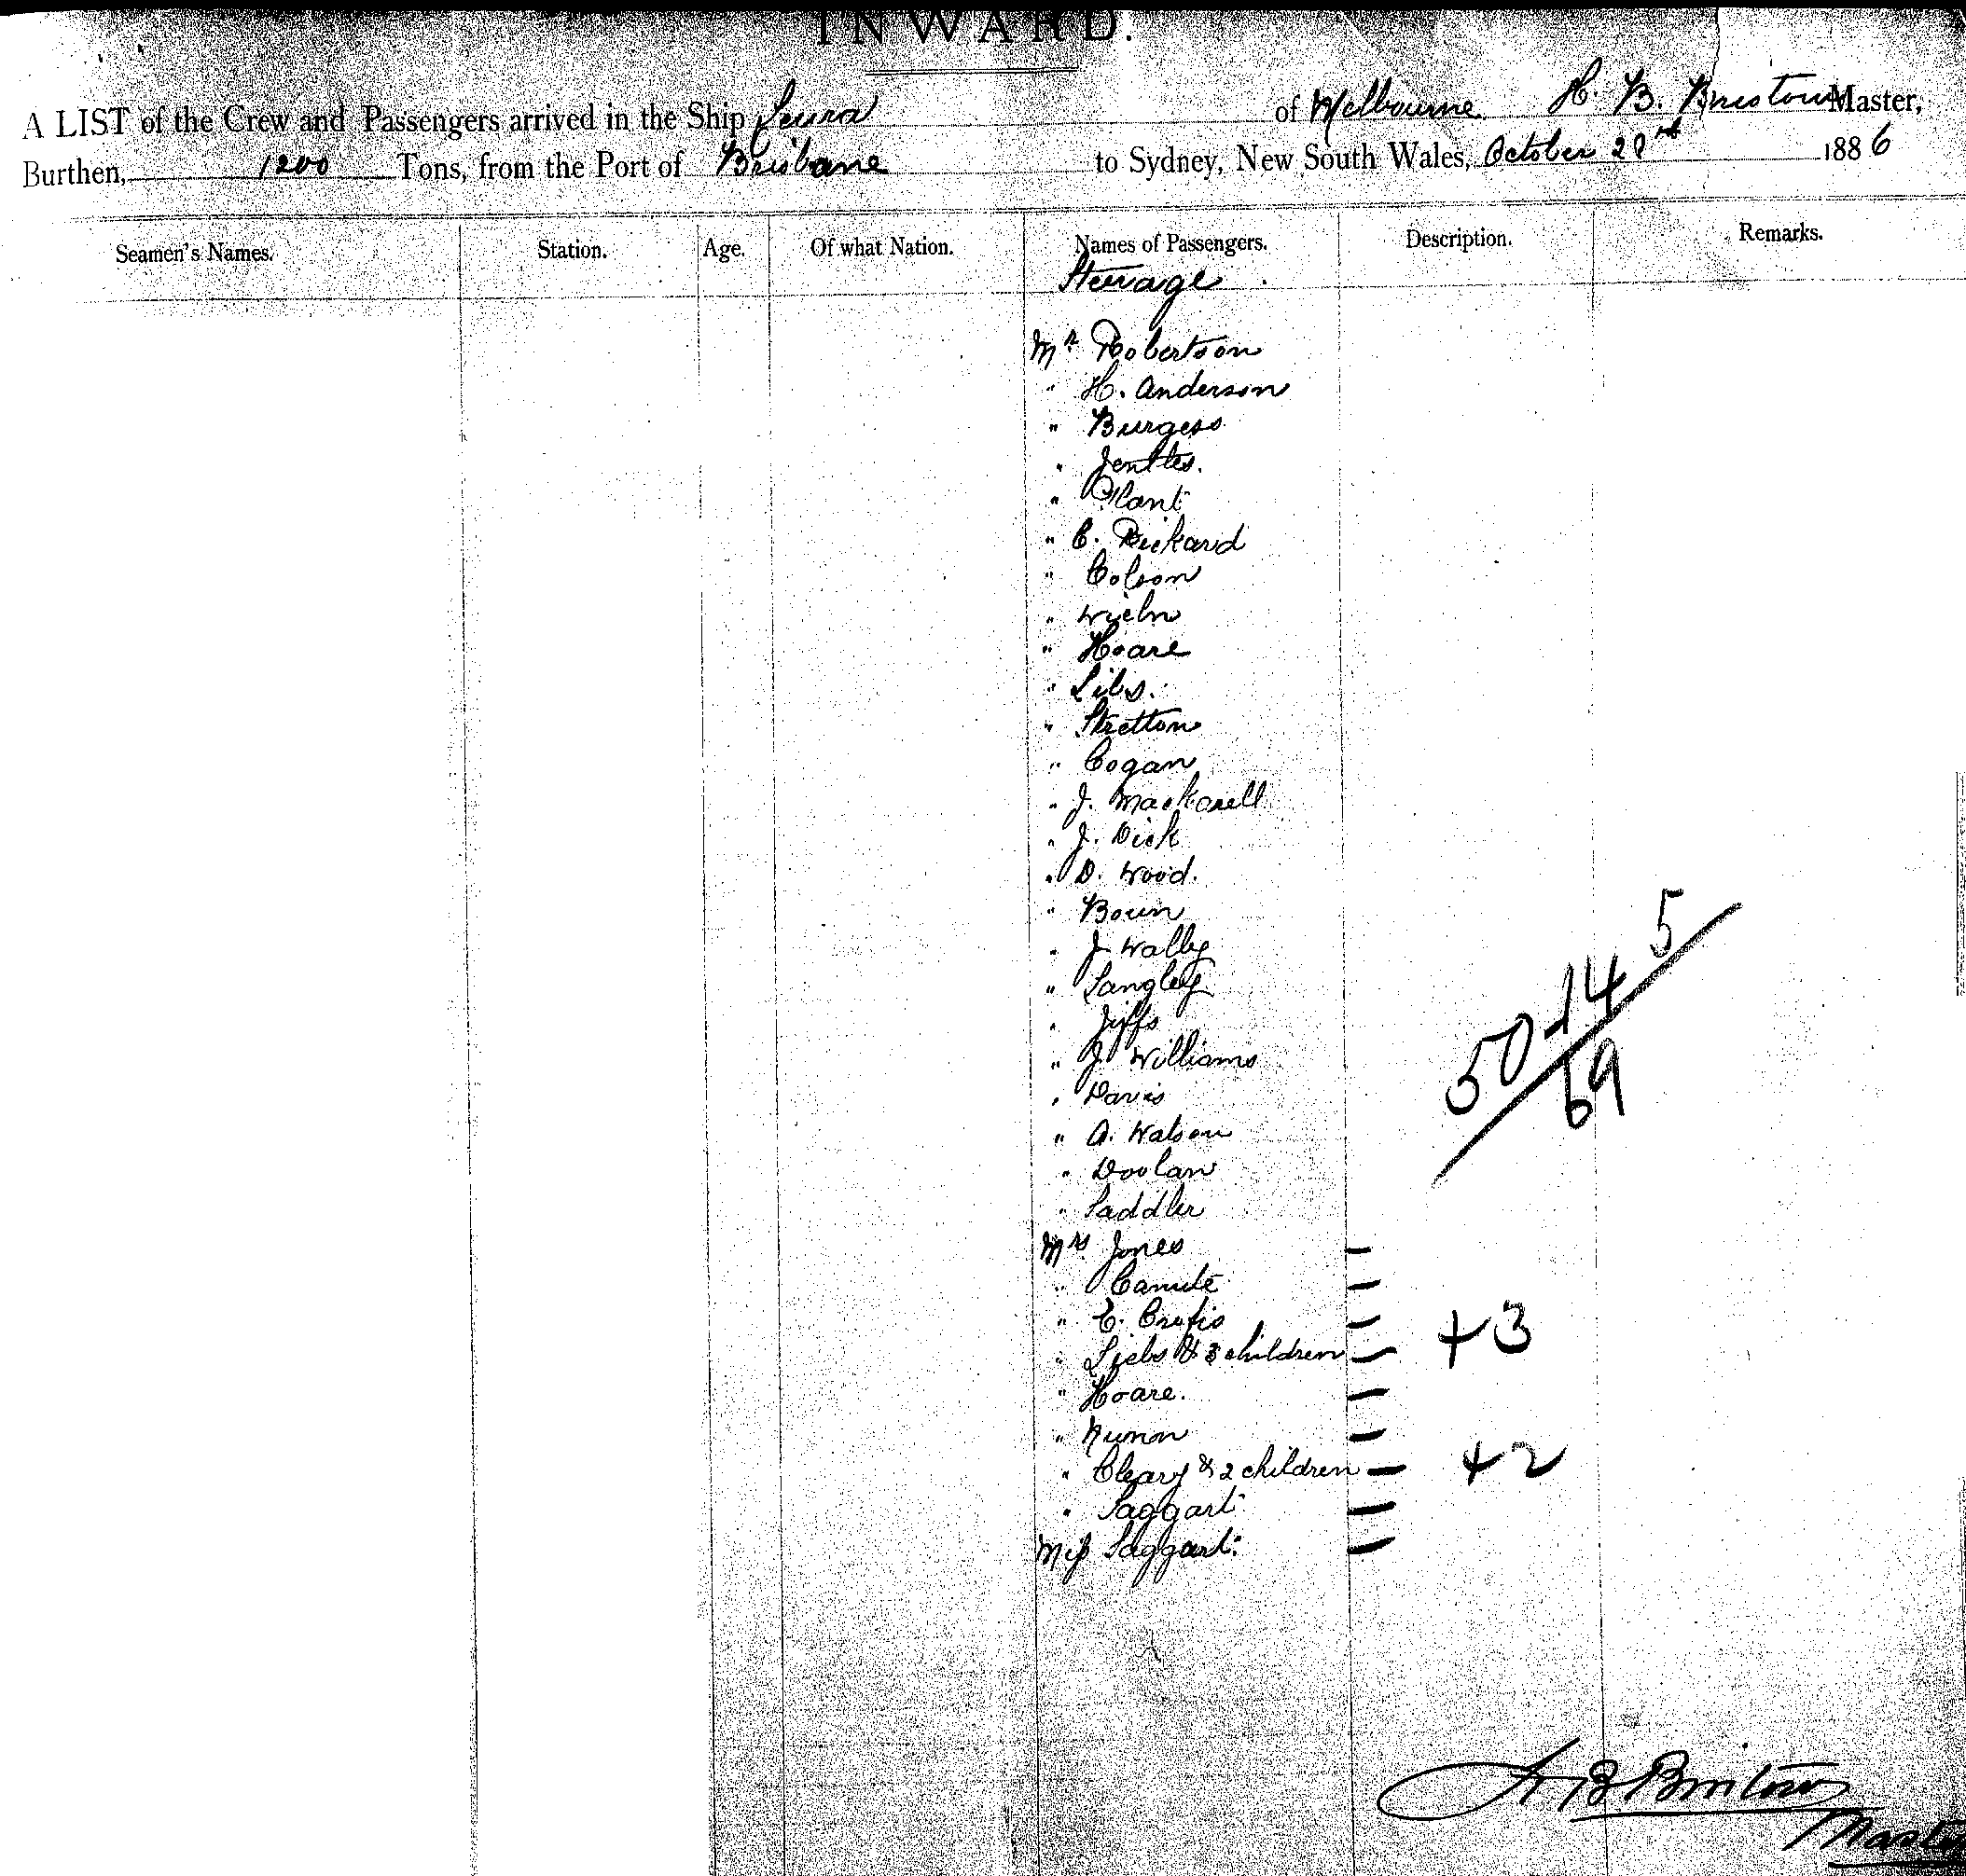 INWARD.
A LIST of the Crew and Passengers arrived in the Ship Leura of Melbourne H. B. Bristow Master,
Burthen, 1200 Tons, from the Port of Brisbane to Sydney, New South Wales, October 1886
Seamen's Names. Station. Age. Of what Nation. Names of Passengers. Description. Remarks.
Steerage
Mr Robertson
" H. Anderson
" Burgess
"
" Plant
" C. Rickard
" Colson
"
" Hoare
" Libs.
" Stretton
" Cogan
" J. Mackarell
" J. Dick
" D. Wood.
" Boun
" J Wally
" Langley
" Jiffs
" J Williams
" Davis
" A. Watson
" Doolan
" Saddler
Mrs Jones
" Canute
" E.
" Liebs & 3 children +3
" Hoare.
"
" Cleary & 2 children +2
" Taggart
Miss Taggart
50 14 5
69
H B Bristow
Master